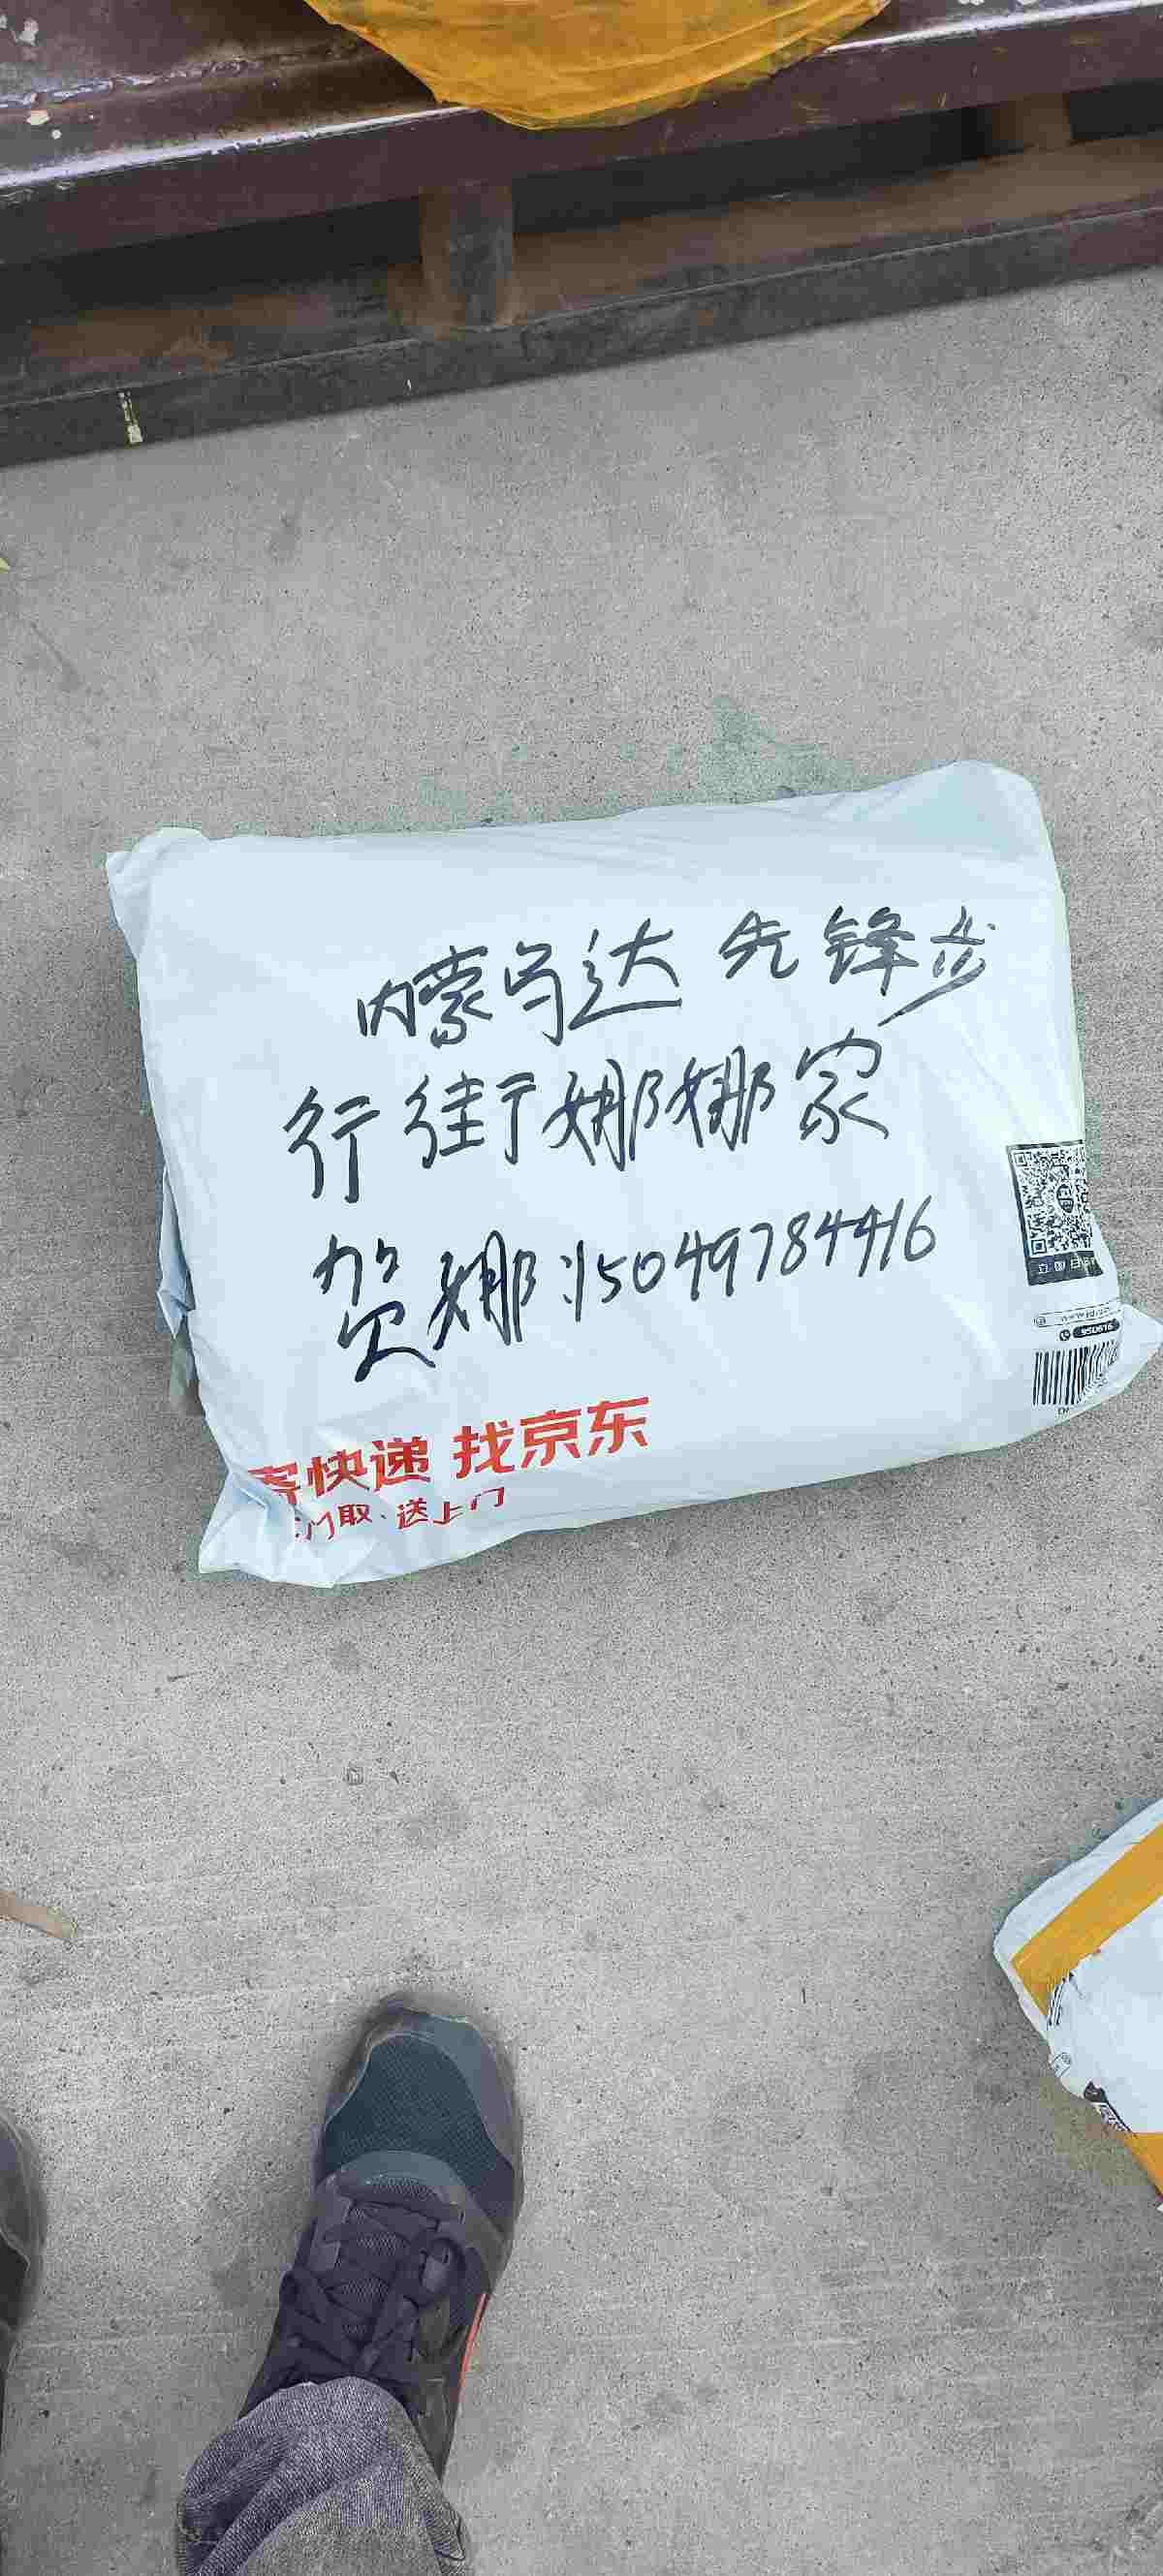 内蒙乌达 先锋步
行街娜娜家
贺娜:15049784416
寄快递 找京东
门取·送上门
950616